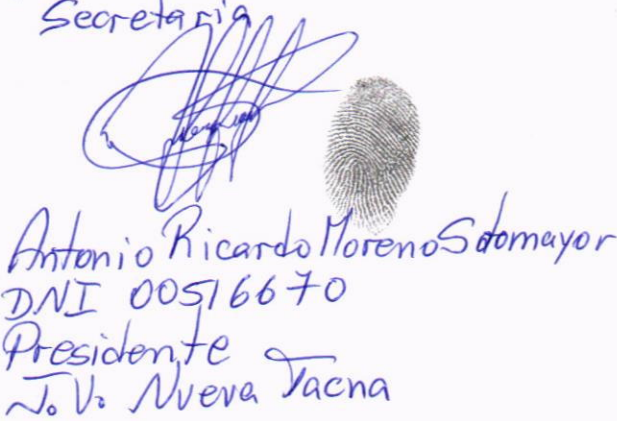 Secretaria
Antonio Ricardo Moreno Sotomayor
DNI 00516670
Presidente
J. V. Nueva Tacna